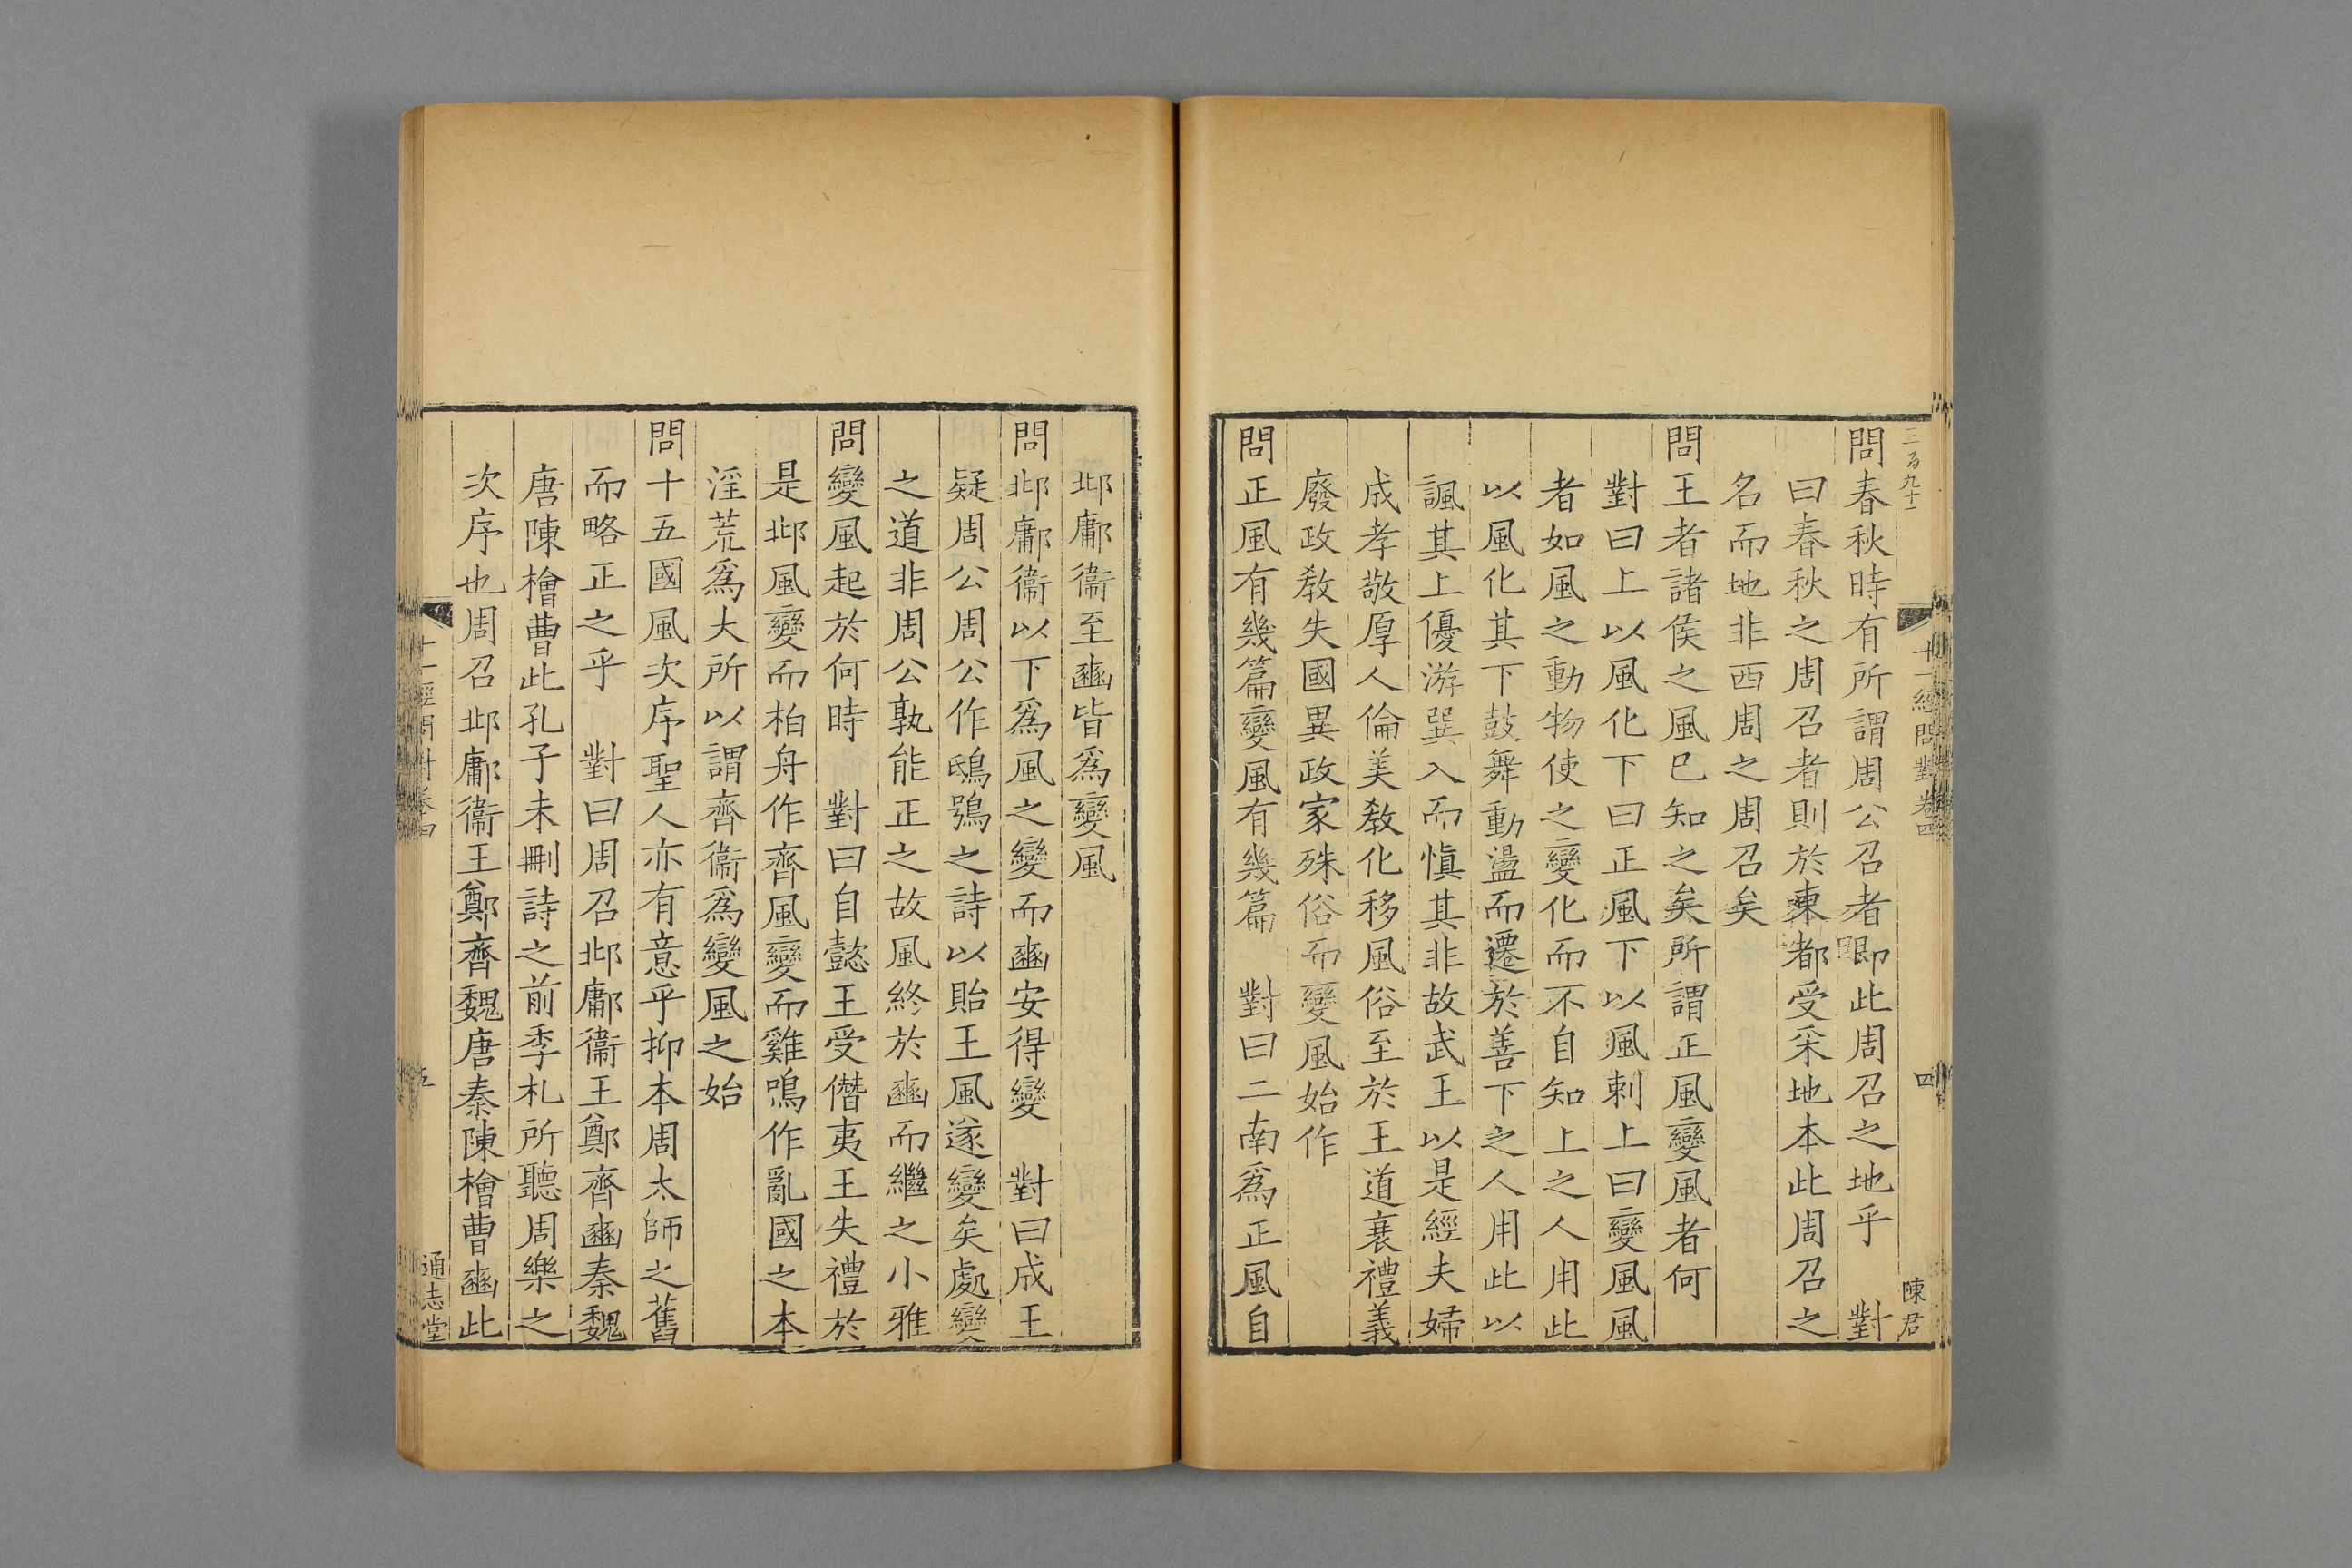 三百九十二
十一經問對卷四
四
陳君
問春秋時有所謂周公召者卽此周召之地乎　對
曰春秋之周召者則於東都受采地本此周召之
名而地非西周之周召矣
問王者諸侯之風已知之矣所謂正風變風者何
對曰上以風化下曰正風下以風刺上曰變風風
者如風之動物使之變化而不自知上之人用此
以風化其下鼓舞動盪而遷於善下之人用此以
諷其上優游巽入而愼其非故武王以是經夫婦
成孝敬厚人倫美敎化移風俗至於王道衰禮義
廢政敎失國異政家殊俗而變風始作
問正風有幾篇變風有幾篇　對曰二南爲正風自
邶鄘衞至豳皆爲變風
問邶鄘衞以下爲風之變而豳安得變　對曰成王
疑周公周公作鴟鴞之詩以貽王風遂變矣處變
之道非周公孰能正之故風終於豳而繼之小雅
問變風起於何時　對曰自懿王受僭夷王失禮於
是邶風變而柏舟作齊風變而雞鳴作亂國之本
淫荒爲大所以謂齊衞爲變風之始
問十五國風次序聖人亦有意乎抑本周太師之舊
而略正之乎　對曰周召邶鄘衞王鄭齊豳秦魏
唐陳檜曹此孔子未刪詩之前季札所聽周樂之
次序也周召邶鄘衞王鄭齊魏唐秦陳檜曹豳此
十一經問對卷四
五
通志堂